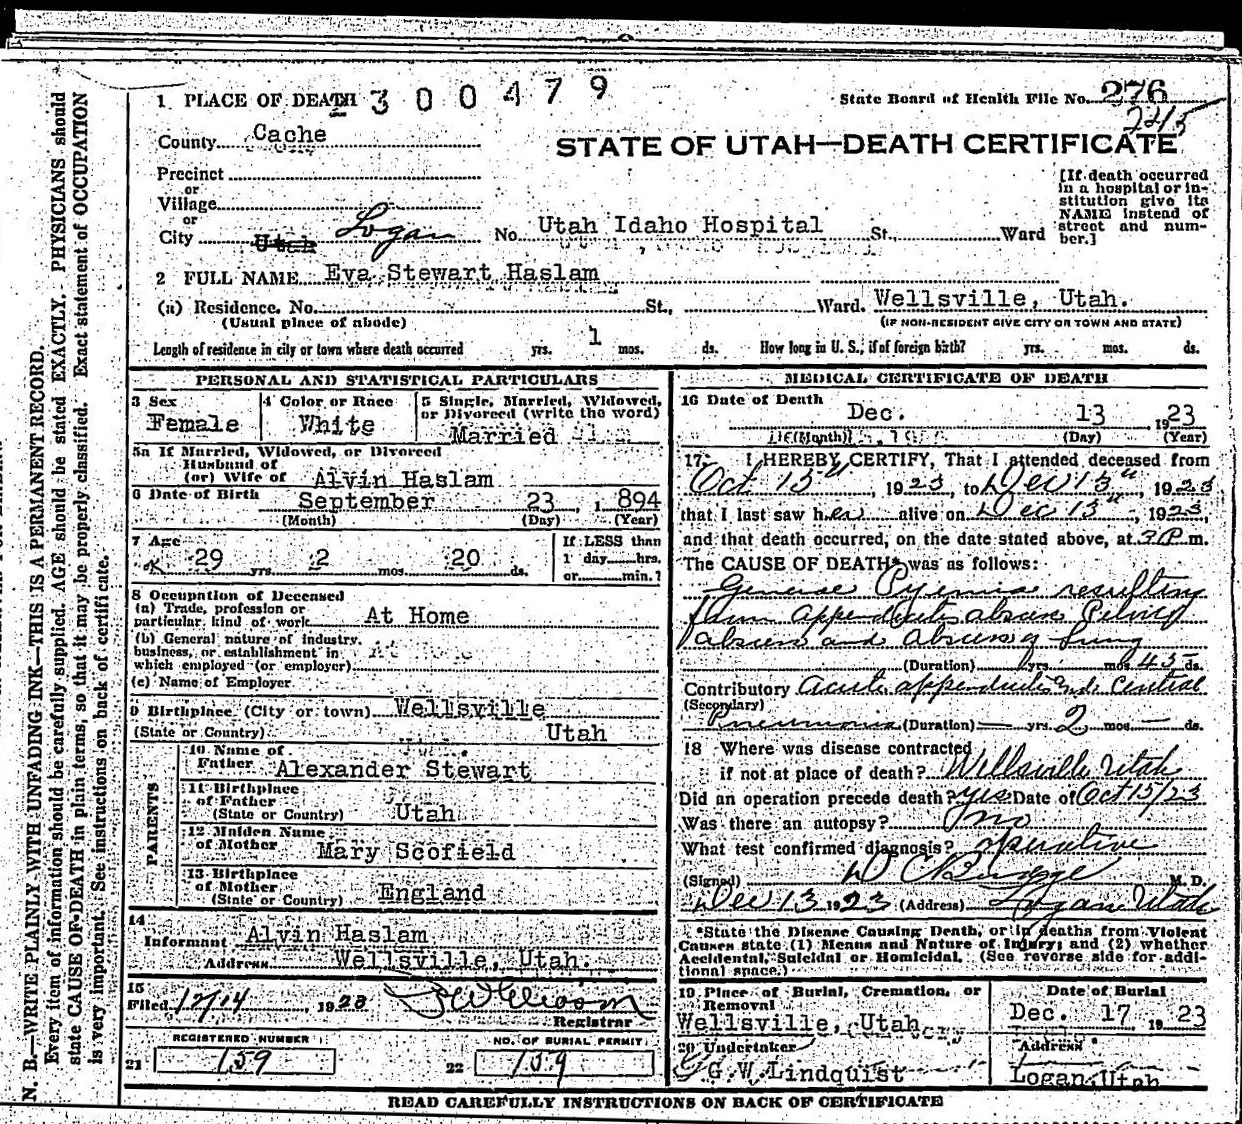 1 PLACE OF DEATH 300479
State Board of Health File No. 276
2215
County Cache
STATE OF UTAH—DEATH CERTIFICATE
Precinct
or
Village
or
City Utah Logan No. Utah Idaho Hospital St., Ward
[If death occurred in a hospital or institution give its NAME instead of street and number.]
2 FULL NAME Eva Stewart Haslam
(a) Residence. No. St., Ward. Wellsville, Utah.
(Usual place of abode) (IF NON-RESIDENT GIVE CITY OR TOWN AND STATE)
Length of residence in city or town where death occurred yrs. 1 mos. ds. How long in U. S., if of foreign birth? yrs. mos. ds.
PERSONAL AND STATISTICAL PARTICULARS
3 Sex Female
4 Color or Race White
5 Single, Married, Widowed, or Divorced (write the word) Married
5a If Married, Widowed, or Divorced
Husband of
(or) Wife of Alvin Haslam
6 Date of Birth September 23, 1894
(Month) (Day) (Year)
7 Age 29 yrs. 2 mos. 20 ds.
If LESS than 1 day hrs. or min.?
8 Occupation of Deceased
(a) Trade, profession or particular kind of work At Home
(b) General nature of industry, business, or establishment in which employed (or employer)
(c) Name of Employer
9 Birthplace (City or town) Wellsville
(State or Country) Utah
PARENTS
10 Name of Father Alexander Stewart
11 Birthplace of Father (State or Country) Utah
12 Maiden Name of Mother Mary Scofield
13 Birthplace of Mother (State or Country) England
14 Informant Alvin Haslam
Address Wellsville, Utah.
15 Filed 12/14, 1923
Registrar
REGISTERED NUMBER
21 159
NO. OF BURIAL PERMIT
22 159
MEDICAL CERTIFICATE OF DEATH
16 Date of Death Dec. 13, 1923
(Month) (Day) (Year)
17 I HEREBY CERTIFY, That I attended deceased from
Oct 15th, 1923, to Dec 13th, 1923
that I last saw her alive on Dec 13th, 1923,
and that death occurred, on the date stated above, at 3 P. m.
The CAUSE OF DEATH* was as follows:
General Pyemia resulting
from appendicitis abscess Pelvic
abscess and abscess of lung
(Duration) yrs. mos. 45 ds.
Contributory Acute appendicitis and Central
(Secondary)
Pneumonia (Duration) — yrs. 2 mos. — ds.
18 Where was disease contracted
if not at place of death? Wellsville Utah
Did an operation precede death? yes Date of Oct 15/23
Was there an autopsy? no
What test confirmed diagnosis? operative
(Signed) D C Budge M. D.
Dec 13 1923 (Address) Logan Utah
*State the Disease Causing Death, or in deaths from Violent
Causes state (1) Means and Nature of Injury; and (2) whether
Accidental, Suicidal or Homicidal. (See reverse side for additional space.)
19 Place of Burial, Cremation, or Removal Wellsville, Utah
Date of Burial Dec. 17 1923
20 Undertaker G. W. Lindquist
Address Logan, Utah
READ CAREFULLY INSTRUCTIONS ON BACK OF CERTIFICATE
N. B.—WRITE PLAINLY WITH UNFADING INK—THIS IS A PERMANENT RECORD.
Every item of information should be carefully supplied. AGE should be stated EXACTLY. PHYSICIANS should
state CAUSE OF DEATH in plain terms, so that it may be properly classified. Exact statement of OCCUPATION
is very important. See instructions on back of certificate.